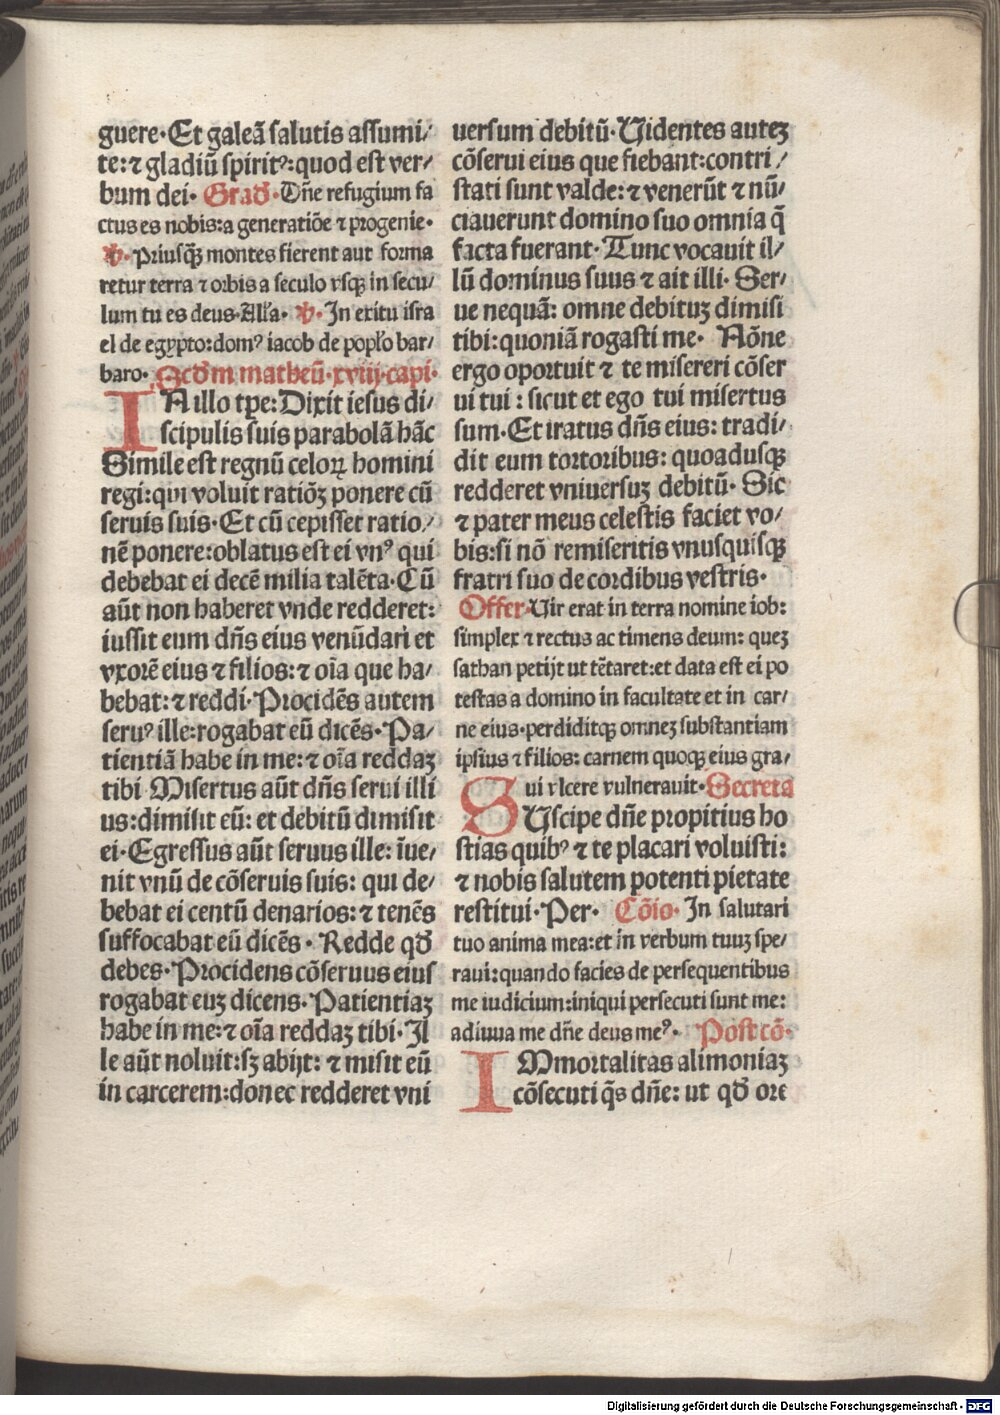 guere·Et galeā salutis assumi/
te:⁊ gladiū spiritꝰ:quod est ver/
bum dei· Grad̄·Dn̄e refugium fa
ctus es nobis:a generatiōe ⁊ progenie·
℣·Priusqꝫ montes fierent aut forma
retur terra ⁊ orbis a seculo vsqꝫ in secu/
lum tu es deus·Alľa· ℣·In exitu isra
el de egypto:domꝰ iacob de popľo bar/
baro· Scd̄m matheū·xviij·capi·
IN illo tp̄e:Dixit iesus di/
scipulis suis parabolā hāc
Simile est regnū celoꝝ homini
regi:qui voluit ratiōꝫ ponere cū
seruis suis·Et cū cepisset ratio/
nē ponere:oblatus est ei vnꝰ qui
debebat ei decē milia talēta·Cū
aūt non haberet vnde redderet:
iussit eum dn̄s eius venūdari et
vxorē eius ⁊ filios:⁊ oīa que ha/
bebat:⁊ reddi·Procidēs autem
seruꝰ ille:rogabat eū dicēs·Pa/
tientiā habe in me:⁊ oīa reddaꝫ
tibi Misertus aūt dn̄s serui illi
us:dimisit eū: et debitū dimisit
ei·Egressus aūt seruus ille: īue/
nit vnū de cōseruis suis: qui de/
bebat ei centū denarios:⁊ tenēs
suffocabat eū dicēs· Redde qd̄
debes·Procidens cōseruus eius
rogabat euꝫ dicens·Patientiaꝫ
habe in me:⁊ oīa reddaꝫ tibi·Il
le aūt noluit:sꝫ abijt: ⁊ misit eū
in carcerem:donec redderet vni
uersum debitū·Uidentes auteꝫ
cōserui eius que fiebant:contri/
stati sunt valde:⁊ venerūt ⁊ nū/
ciauerunt domino suo omnia q̄
facta fuerant·Tunc vocauit il/
lū dominus suus ⁊ ait illi·Ser/
ue nequā: omne debituꝫ dimisi
tibi:quoniā rogasti me· Nōne
ergo oportuit ⁊ te misereri cōser
ui tui : sicut et ego tui misertus
sum·Et iratus dn̄s eius: tradi/
dit eum tortoribus: quoadusqꝫ
redderet vniuersuꝫ debitū· Sic
⁊ pater meus celestis faciet vo/
bis:si nō remiseritis vnusquisqꝫ
fratri suo de cordibus vestris·
Offer·Uir erat in terra nomine iob:
simplex ⁊ rectus ac timens deum: queꝫ
sathan petijt ut tētaret:et data est ei po
testas a domino in facultate et in car/
ne eius·perdiditqꝫ omneꝫ substantiam
ipsius ⁊ filios: carnem quoqꝫ eius gra/
ui vlcere vulnerauit·Secreta
SUscipe dn̄e propitius ho
stias quibꝰ ⁊ te placari voluisti:
⁊ nobis salutem potenti pietate
restitui·Per· Cōio·In salutari
tuo anima mea:et in verbum tuuꝫ spe/
raui:quando facies de persequentibus
me iudicium:iniqui persecuti sunt me:
adiuua me dn̄e deus meꝰ· Post cō·
IMmortalitas alimoniaꝫ
cōsecuti q̄s dn̄e: ut qd̄ ore
Digitalisierung gefördert durch die Deutsche Forschungsgemeinschaft · DFG